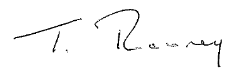 T. Rooney